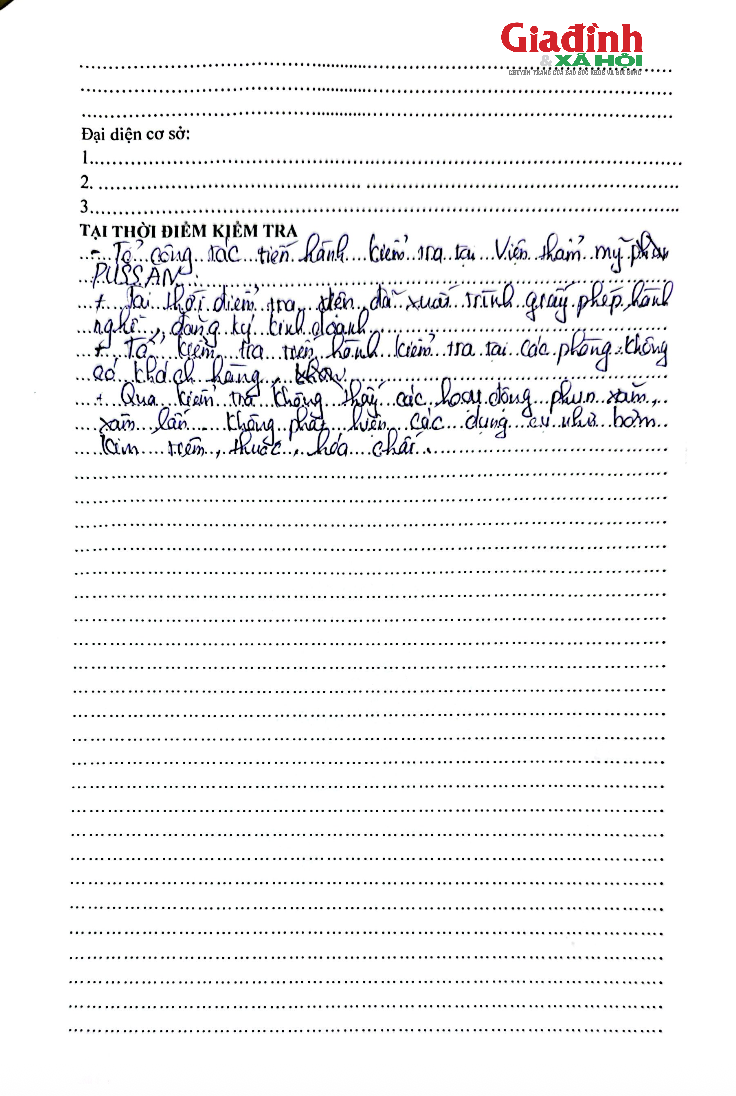 Giađình
& XÃ HỘI
Đại diện cơ sở:
1.
2.
3.
TẠI THỜI ĐIỂM KIỂM TRA
- Tổ công tác tiến hành kiểm tra tại Viện thẩm mỹ
PUSSAN:
+ Tại thời điểm tra viện đã xuất trình giấy phép hành
nghề, đăng ký kinh doanh.
+, Tổ kiểm tra tiến hành kiểm tra tại các phòng không
có khách hàng,
+ Qua kiểm tra không thấy các hoạt động phun xăm,
xâm lấn không phát hiện các dụng cụ như bơm
kim tiêm, thuốc, hóa chất.